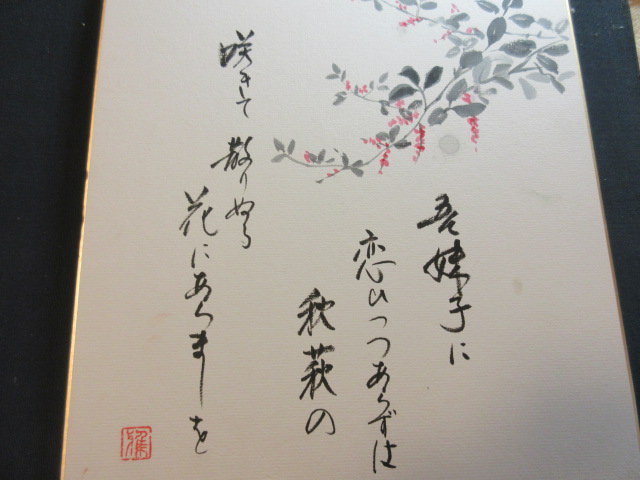 吾妹子に
恋ひつつあらずは
秋萩の
咲きて散りぬる
花にあらましを
雅